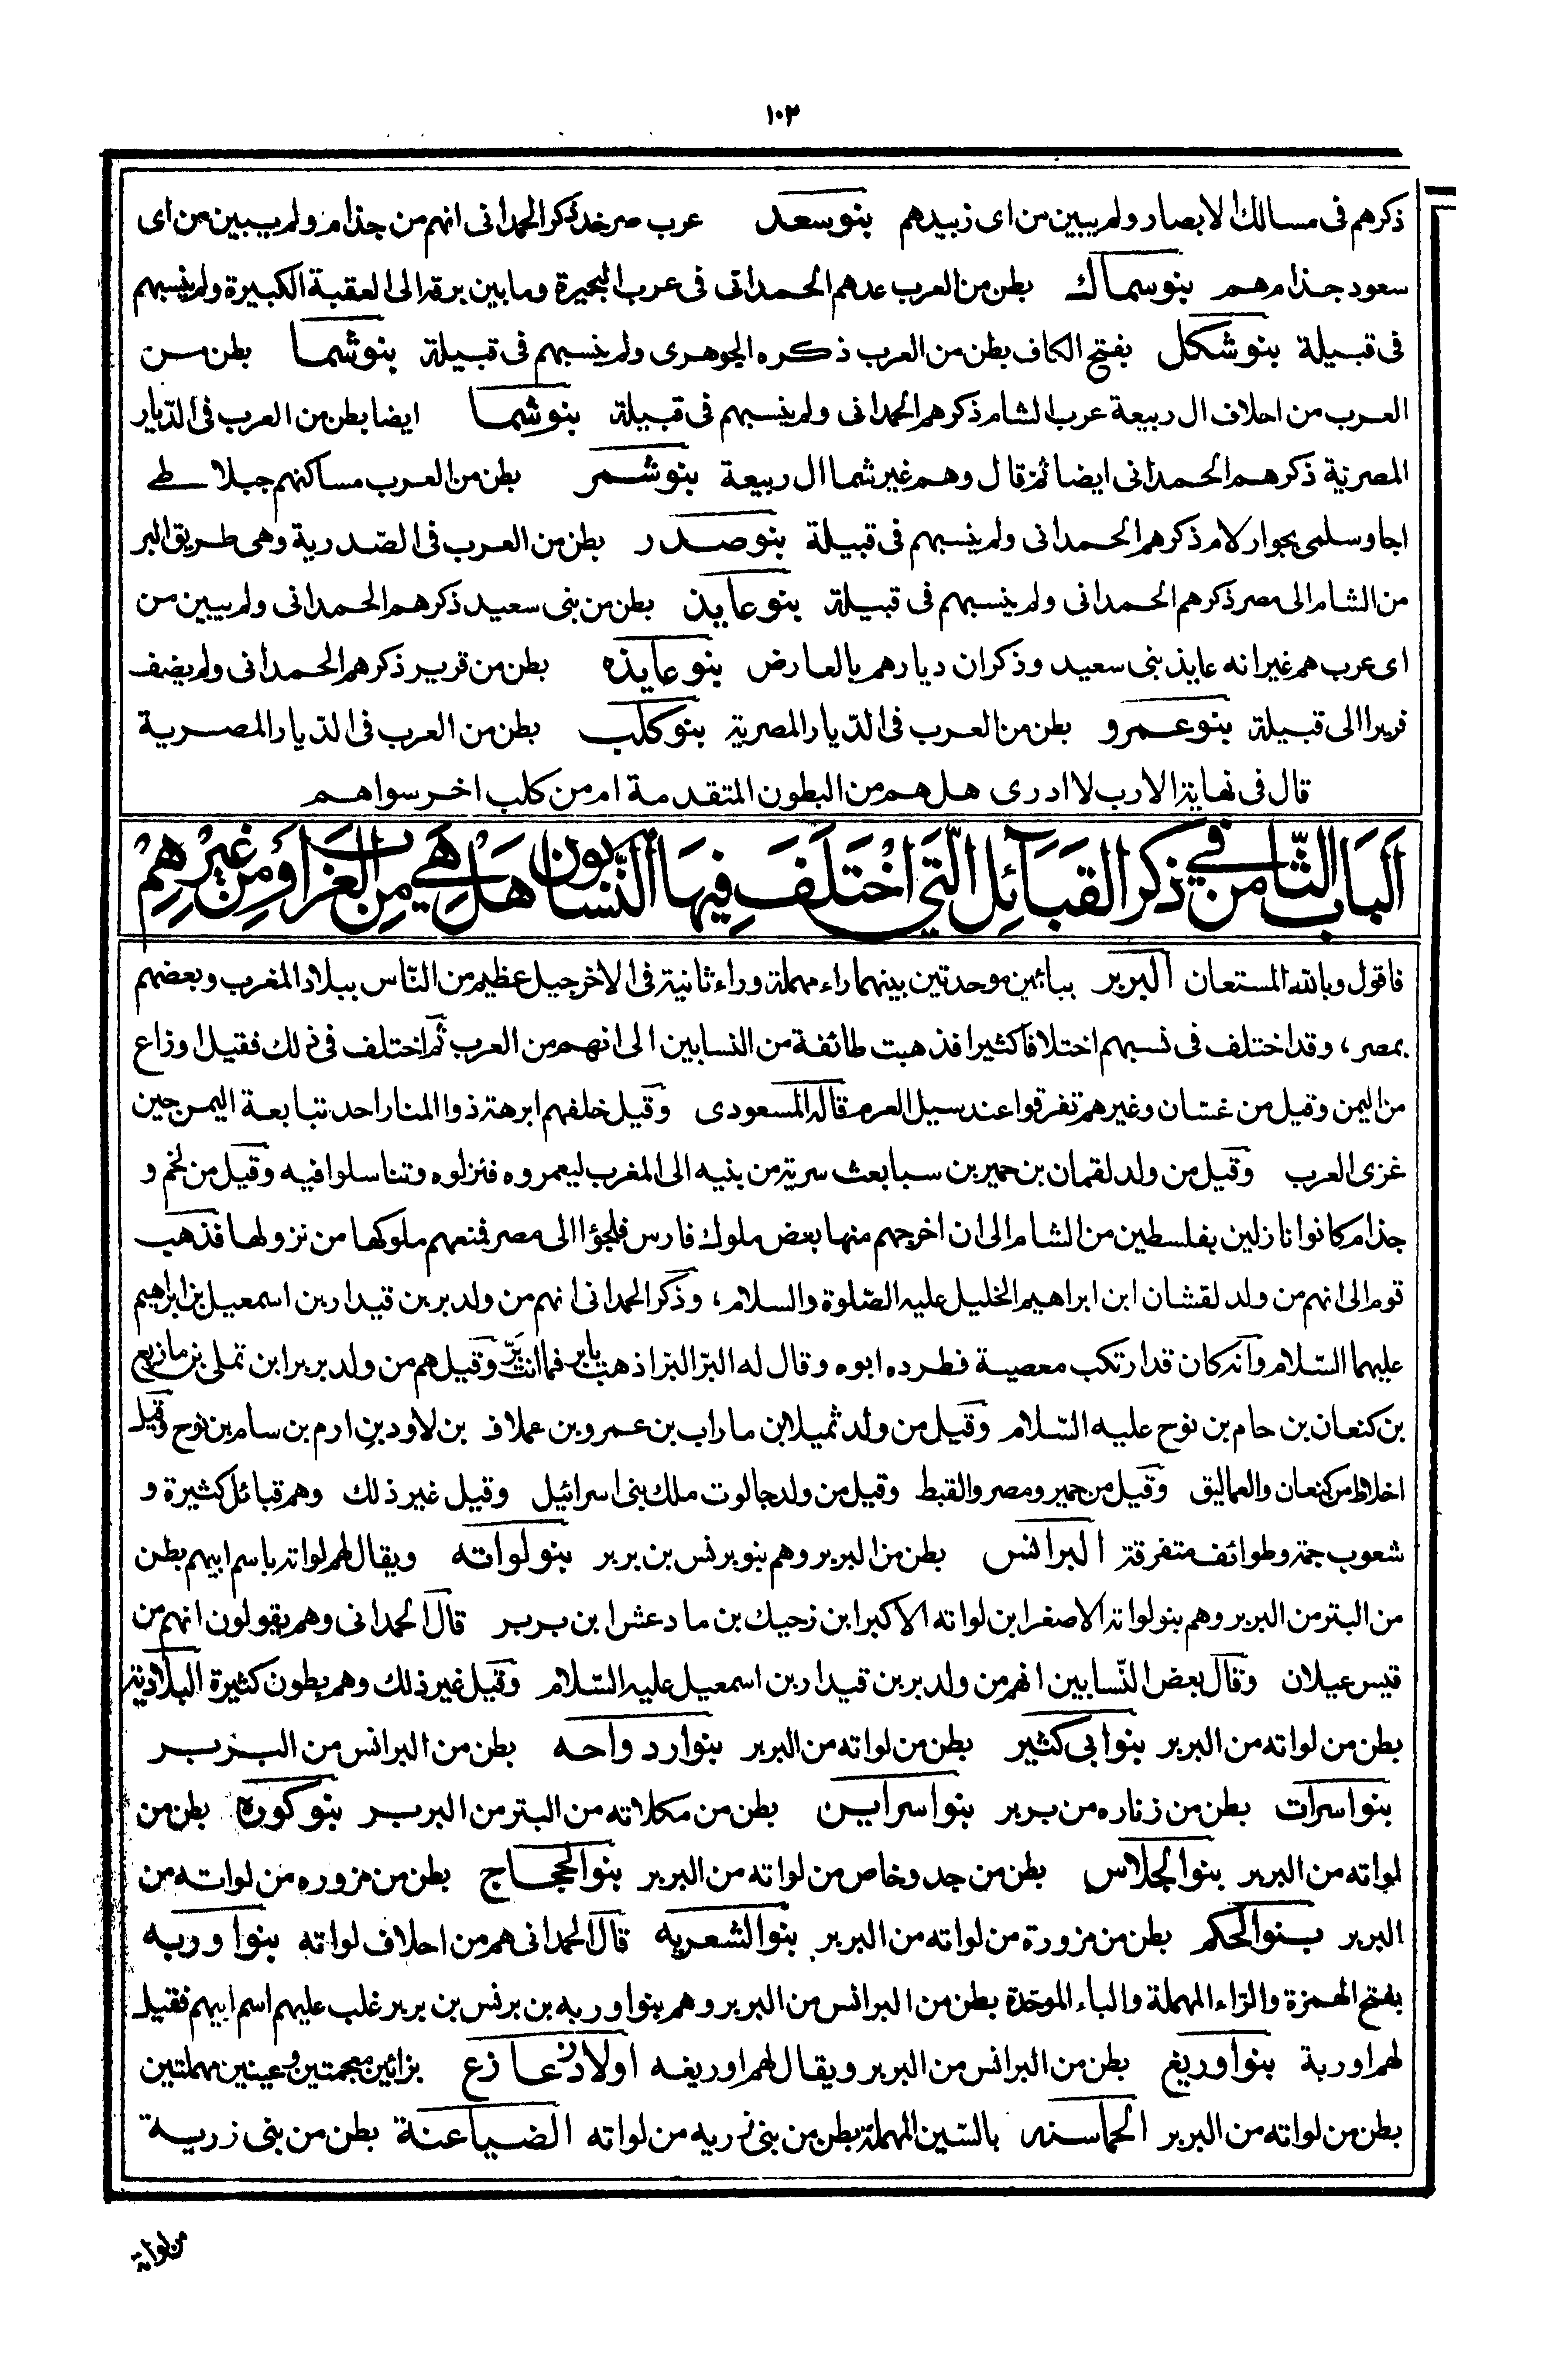 ١٠٢
ذكرهم فى مسالك الابصار ولم يبين من اى زبيد هم بنو سعد عرب صرخد ذكر الحمدانى انهم من جذام ولم يبين من اى
سعود جذام هم بنو سماك بطن من العرب عدهم الحمدانى فى عرب البحيرة وما بين برقه الى العقبة الكبيرة ولم ينسبهم
فى قبيلة بنو شكل بفتح الكاف بطن من العرب ذكره الجوهرى ولم ينسبهم فى قبيلة بنو شما بطن من
العرب من احلاف ال ربيعة عرب الشام ذكرهم الحمدانى ولم ينسبهم فى قبيلة بنو شما ايضا بطن من العرب فى الدّيار
المصريّة ذكرهم الحمدانى ايضا ثم قال وهم غير شما ال ربيعة بنو شمر بطن من العرب مساكنهم جبلا طے
اجا وسلمى بجوار لام ذكرهم الحمدانى ولم ينسبهم فى قبيلة بنو صدر بطن من العرب فى الصّدرية وهى طريق البر
من الشام الى مصر ذكرهم الحمدانى ولم ينسبهم فى قبيلة بنو عايذ بطن من بنى سعيد ذكرهم الحمدانى ولم يبين من
اى عرب هم غير انه عايذ بنى سعيد وذكر ان ديارهم بالعارض بنو عايذه بطن من قرير ذكرهم الحمدانى ولم يضف
قريرا الى قبيلة بنو عمرو بطن من العرب فى الدّيار المصرية بنو كلب بطن من العرب فى الدّيار المصرية
قال فى نهاية الارب لا ادرى هل هم من البطون المتقدمة ام من كلب اخر سواهم
اَلبَابُ الثَّامن فِي ذكر القَبَائِل الَّتي اخْتَلَفَ فِيهَا النَّسَّابُون هَلْ هِيَ مِن العَرَبِ اَوْ مِن غَيْرِهِمْ
فاقول وبالله المستعان البربر ببائين موحدتين بينهما راء مهملة وراء ثانية فى الاخر جيل عظيم من النّاس ببلاد المغرب وبعضهم
بمصر، وقد اختلف فى نسبهم اختلافا كثيرا فذهبت طائفة من النسابين الى انهم من العرب ثم اختلف فى ذلك فقيل اوزاع
من اليمن وقيل من غسّان وغيرهم تفرقوا عند سيل العرم قاله المسعودى وقيل خلفهم ابرهة ذو المنار احد تبابعة اليمن حين
غزى العرب وقيل من ولد لقمان بن حمير بن سبا بعث سرية من بنيه الى المغرب ليعمروه فنزلوه وتناسلوا فيه وقيل من لخم و
جذام كانوا نازلين بفلسطين من الشام الى ان اخرجهم منها بعض ملوك فارس فلجؤا الى مصر فمنعهم ملوكها من نزولها فذهب
قوم الى انهم من ولد لقشان ابن ابراهيم الخليل عليه الصّلوة والسلام، وذكر الحمدانى انهم من ولد بر بن قيدار بن اسمعيل بن ابراهيم
عليهما السّلام وانه كان قد ارتكب معصية فطرده ابوه وقال له البرّ البرّ اذهب يا بر فما انت برّ وقيل هم من ولد بربر ابن تملى بن مازيع
بن كنعان بن حام بن نوح عليه السّلام وقيل من ولد ثميلا ابن ماراب بن عمرو بن عملاق بن لاود بن ارم بن سام بن نوح وقيل
اخلاط من كنعان والعماليق وقيل من حمير ومصر والقبط وقيل من ولد جالوت ملك بنى اسرائيل وقيل غير ذلك وهم قبائل كثيرة و
شعوب جمة وطوائف متفرقة البرانس بطن من البربر وهم بنو برنس بن بربر بنو لواته ويقال لهم لواته باسم ابيهم بطن
من البتر من البربر وهم بنو لواته الاصغر ابن لواته الاكبر ابن زحيك بن مادعش ابن بربر قال الحمدانى وهم يقولون انهم من
قيس عيلان وقال بعض النّسابين انهم من ولد بر بن قيدار بن اسمعيل عليه السّلام وقيل غير ذلك وهم بطون كثيرة البلادنية
بطن من لواته من البربر بنو ابى كثير بطن من لواته من البربر بنو ارد واحه بطن من البرانس من البربر
بنو اسرات بطن من زناره من بربر بنو اسراين بطن من مكلاته من البتر من البربر بنو كوره بطن من
لواته من البربر بنو الجلاس بطن من جد وخاص من لواته من البربر بنو الحجاج بطن من مزوره من لواته من
البربر بنو الحكم بطن من مزورة من لواته من البربر بنو الشعريه قال الحمدانى هم من احلاف لواته بنو اوربه
بفتح الهمزة والرّاء المهملة والباء الموحّدة بطن من البرانس من البربر وهم بنو اوربه بن برنس بن بربر غلب عليهم اسم ابيهم فقيل
لهم اوربة بنو اوريغ بطن من البرانس من البربر ويقال لهم اوريغه اولاد زعازع بزائين معجمتين وعينين مهملتين
بطن من لواته من البربر الحماسنه بالسّين المهملة بطن من بنى زريه من لواته الضياعنة بطن من بنى زرية
من لواته